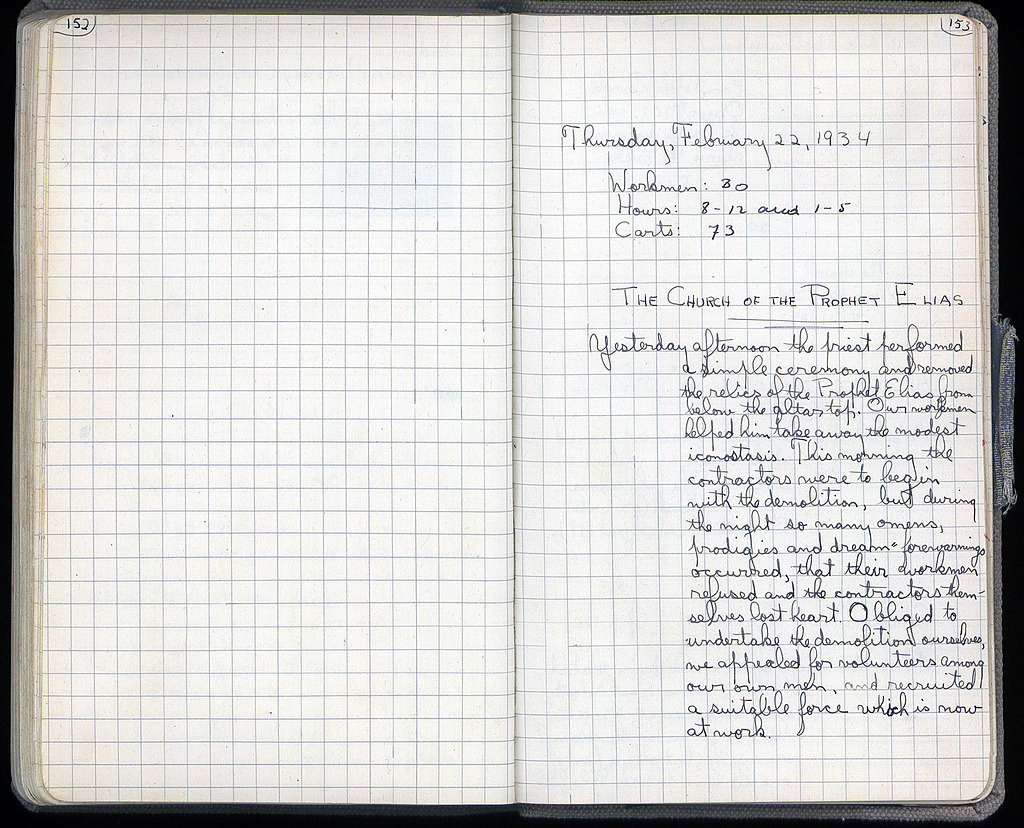 152
153
Thursday, February 22, 1934
Workmen: 30
Hours: 8-12 and 1-5
Carts: 73
THE CHURCH OF THE PROPHET ELIAS
Yesterday afternoon the priest performed
a simple ceremony and removed
the relics of the Prophet Elias from
below the altar top. Our workmen
helped him take away the modest
iconostasis. This morning the
contractors were to begin
with the demolition, but during
the night so many omens,
prodigies and dream-forewarnings
occurred, that their workmen
refused and the contractors them-
selves lost heart. Obliged to
undertake the demolition ourselves,
we appealed for volunteers among
our own men, and recruited
a suitable force which is now
at work.